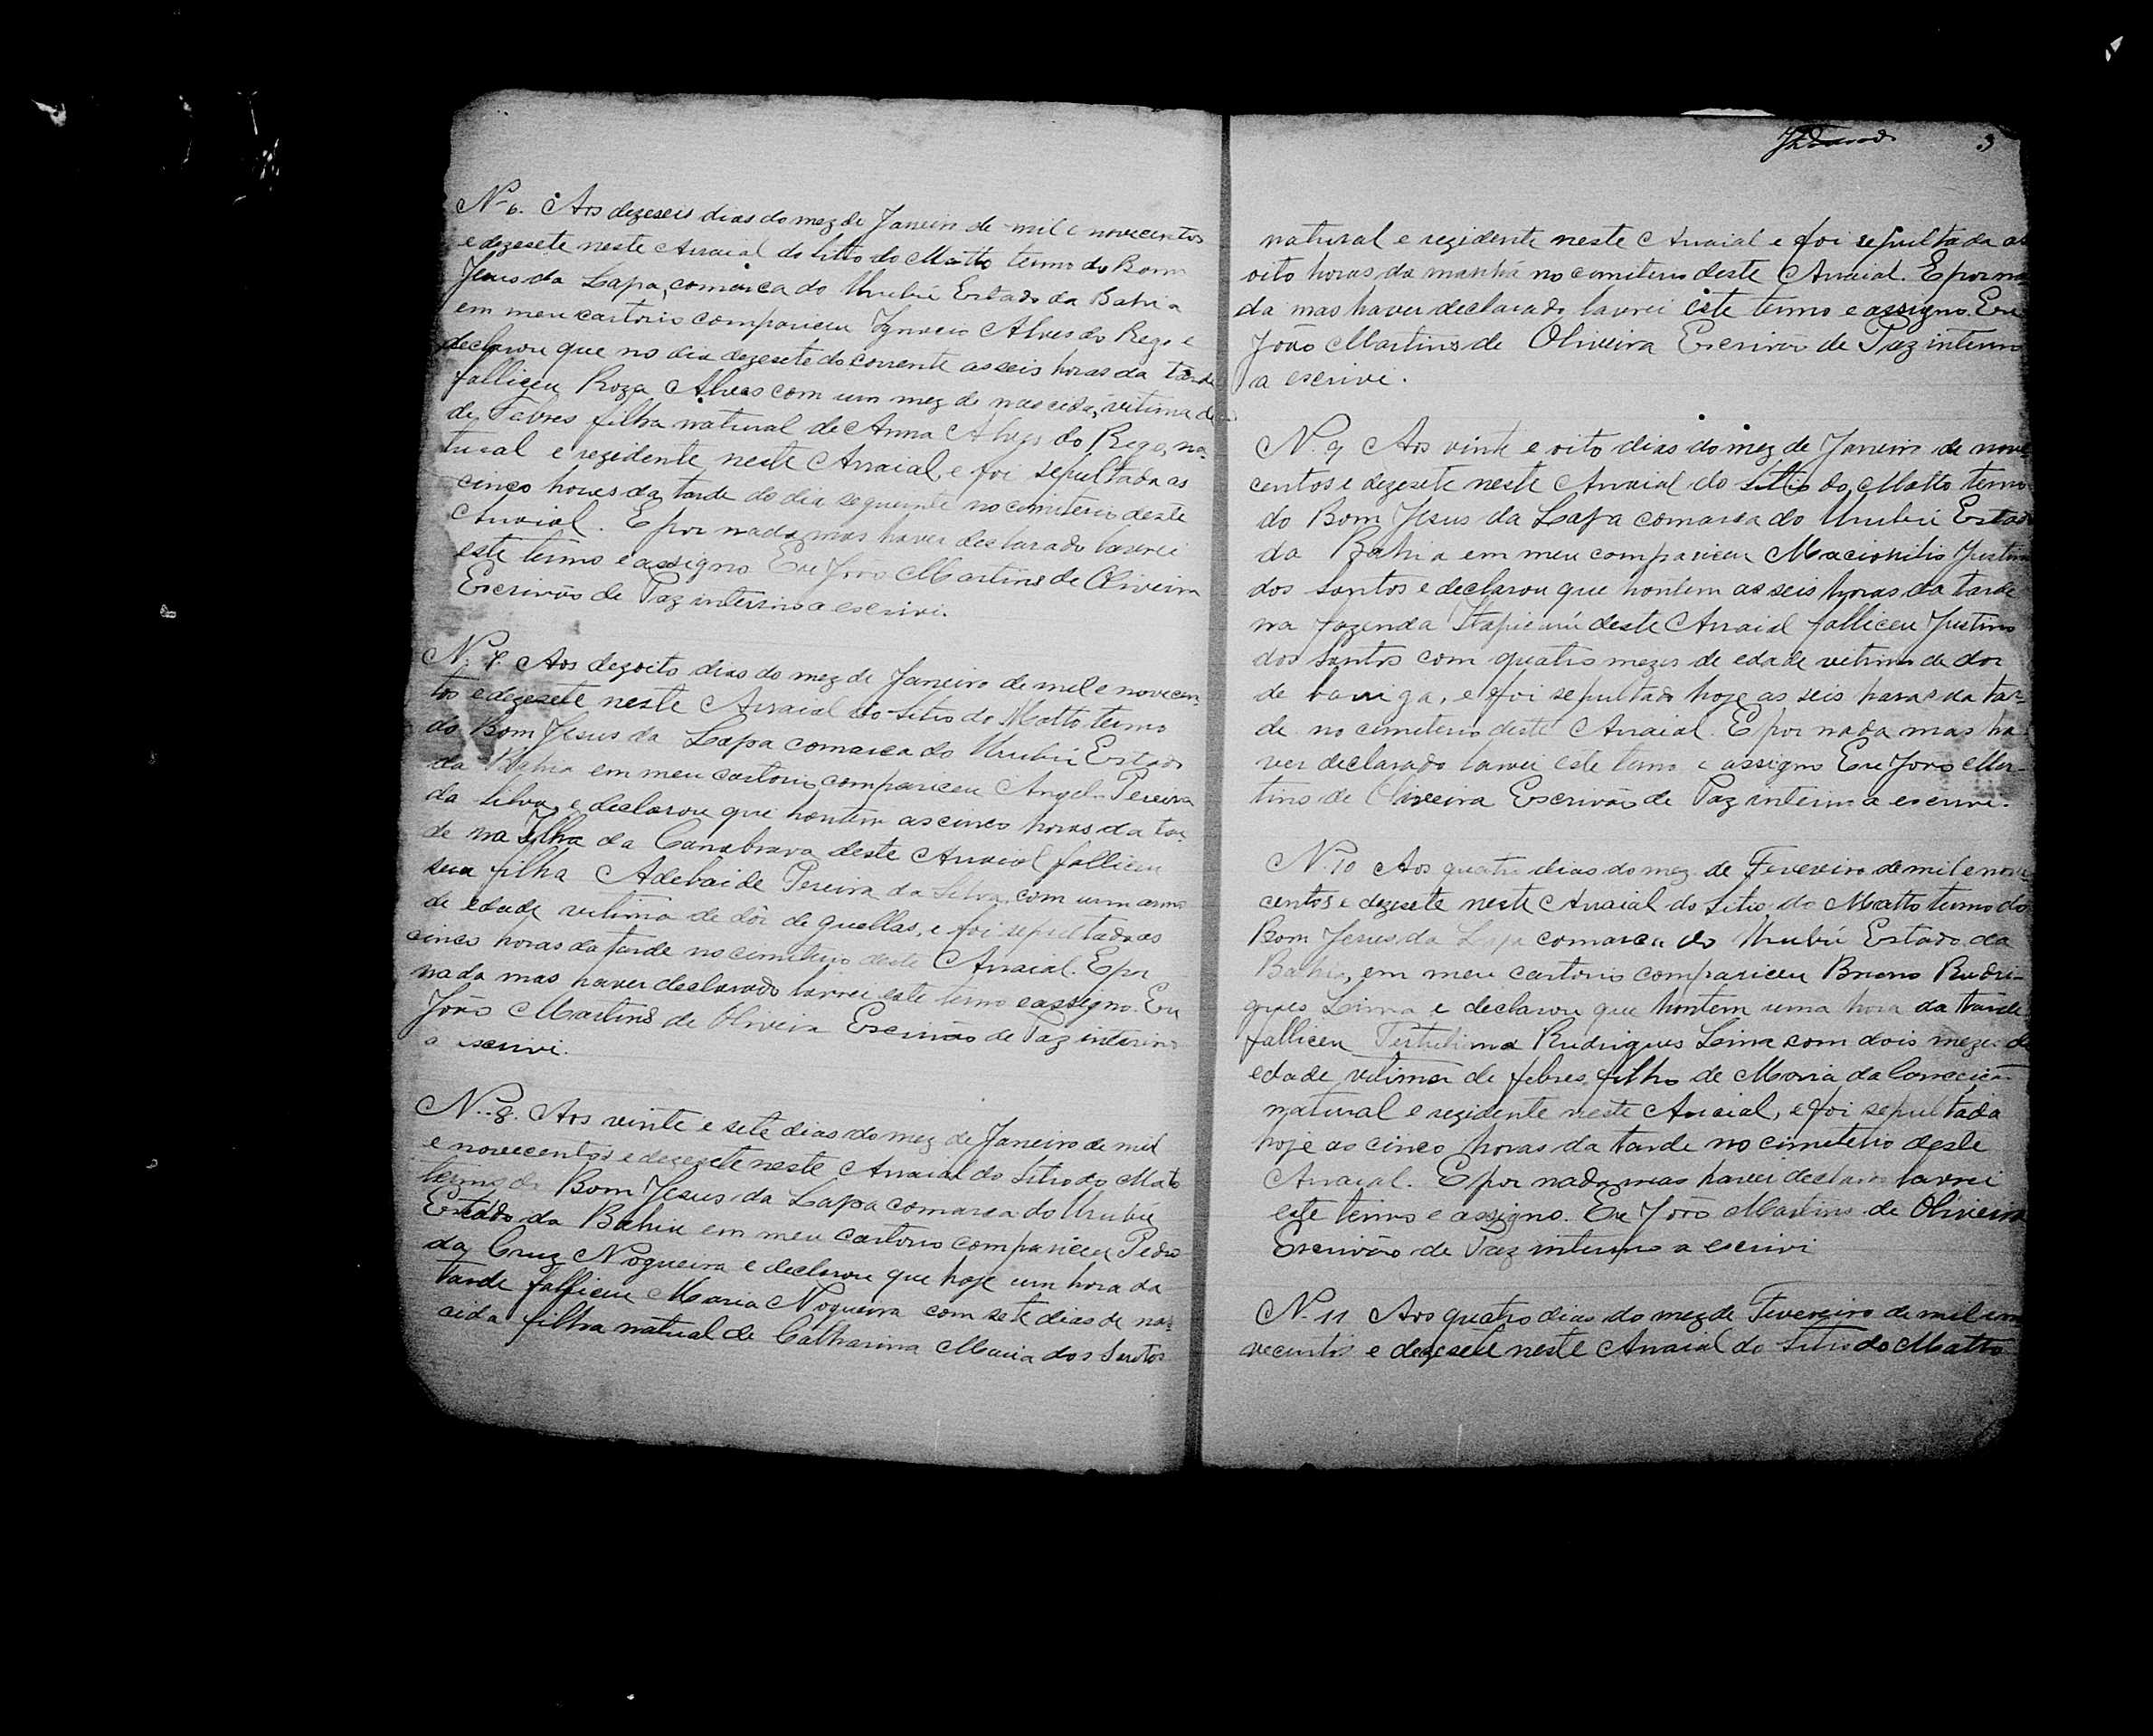 N. 6. Aos dezeseis dias do mez de Janeiro de mil e novecentos
e dezesete neste Arraial do Sitio do Matto termo do Bom
Jesus da Lapa, comarca do Urubú Estado da Bahia
em meu cartorio compariceu Ignacio Alves do Rego e
declarou que no dia dezesete do corrente as seis horas da tarde
falliceu Roza Alves com um mez de nascida, vitima de
de Febres filha natural de Anna Alves do Rego, na-
tural e rezidente neste Arraial, e foi sepultada as
cinco horas da tarde do dia seguinte no cimiterio deste
Arraial. E por nada mas haver declarado lavrei
este termo e assigno. Eu João Martins de Oliveira
Escrivão de Paz interino a escrivi.
N. 7. Aos dezoito dias do mez de Janeiro de mil e novecen-
tos e dezesete neste Arraial do Sitio do Matto termo
do Bom Jesus da Lapa comarca do Urubú Estado
da Bahia em meu cartorio compariceu Angelo Pereira
da Silva, e declarou que hontem as cinco horas da tar-
de na Ilha da Canabrava deste Arraial falliceu
sua filha Adelaide Pereira da Silva, com um anno
de edade vitima de dôr de guellas, e foi sepultada as
cinco horas da tarde no cimiterio deste Arraial. E por
nada mas haver declarado lavrei este termo e assigno. Eu
João Martins de Oliveira Escrivão de Paz interino
a escrivi.
N. 8. Aos vinte e sete dias do mez de Janeiro de mil
e novecentos e dezesete neste Arraial do Sitio do Mato
termo do Bom Jesus da Lapa comarca do Urubú
Estado da Bahia em meu cartorio compariceu Pedro
da Cruz Nogueira e declarou que hoje um hora da
tarde falliceu Maria Nogueira com sete dias de nas-
cida filha natural de Catharina Maria dos Santos
3
natural e rezidente neste Arraial e foi sepultada as
oito horas da manhã no cimiterio deste Arraial. E por na
da mas haver declarado lavrei este termo e assigno. Eu
João Martins de Oliveira Escrivão de Paz interino
a escrivi.
N. 9 Aos vinte e oito dias do mez de Janeiro de nove-
centos e dezesete neste Arraial do Sitio do Matto termo
do Bom Jesus da Lapa comarca do Urubú Estado
da Bahia em meu compariceu Macionilio Justino
dos Santos e declarou que hontem as seis horas da tarde
na fazenda Itapicurú deste Arraial falliceu Justino
dos Santos com quatro mezes de edade vitima de dor
de barriga, e foi sepultado hoje as seis horas da tar-
de no cimiterio deste Arraial. E por nada mas ha-
ver declarado lavrei este termo e assigno Eu João Mar-
tins de Oliveira Escrivão de Paz interino a escrivi.
N. 10 Aos quatro dias do mez de Fevereiro de mil e nove-
centos e dezesete neste Arraial do Sitio do Matto termo do
Bom Jesus da Lapa comarca do Urubú Estado da
Bahia, em meu cartorio compariceu Bruno Rudri-
gues Lima e declarou que hontem uma hora da tarde
falliceu Tertuliana Rudrigues Lima com dois mezes de
edade vitima de febres filho de Maria da Conceição
natural e rezidente neste Arraial, e foi sepultada
hoje as cinco horas da tarde no cimiterio deste
Arraial. E por nada mas haver declaro lavrei
este termo e assigno. Eu João Martins de Oliveira
Escrivão de Paz interino a escrivi
N. 11 Aos quatro dias do mez de Fevereiro de mil e no
vecentos e dezesete neste Arraial do Sitio do Matto